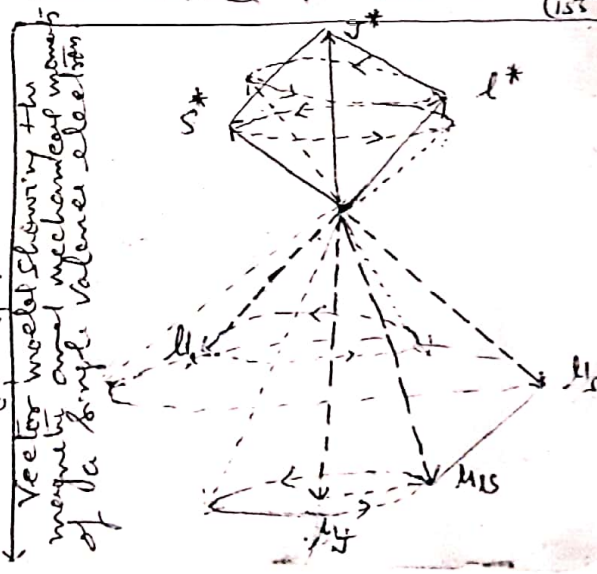 (155
Vector model showing the
magnetic and mechanical moments
of a single valance electron
J*
s*
l*
μl
μs
μls
μj